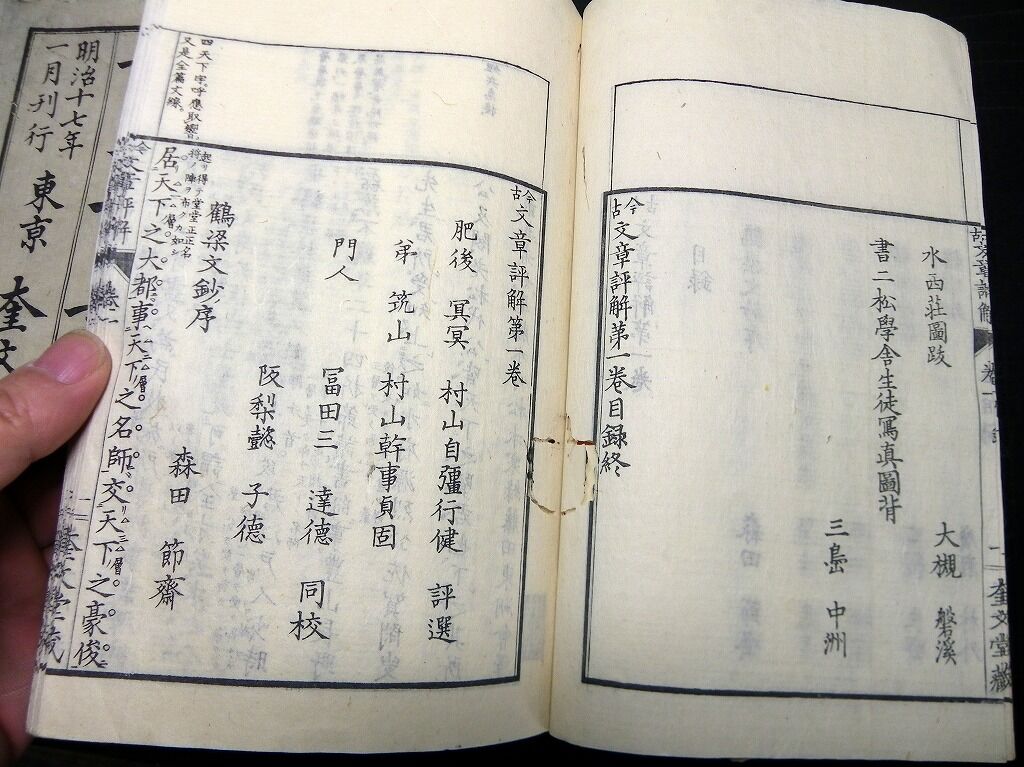 水西莊圖跋
大槻 磐溪
書二松學舍生徒寫真圖背
三島 中洲
今古文章評解第一卷目録終
奎文堂藏
今古文章評解第一卷
肥後 冥冥 村山自彊行健 評選
弟 筑山 村山幹事貞固
門人
冨田三 達德 同校
阪梨懿 子德
鶴梁文鈔ノ序
森田 節齋
居天下之大都事天下之名師交天下之豪俊
四天下字呼應取響
又是全篇文線
明治十七年
一月刊行
東京
奎文